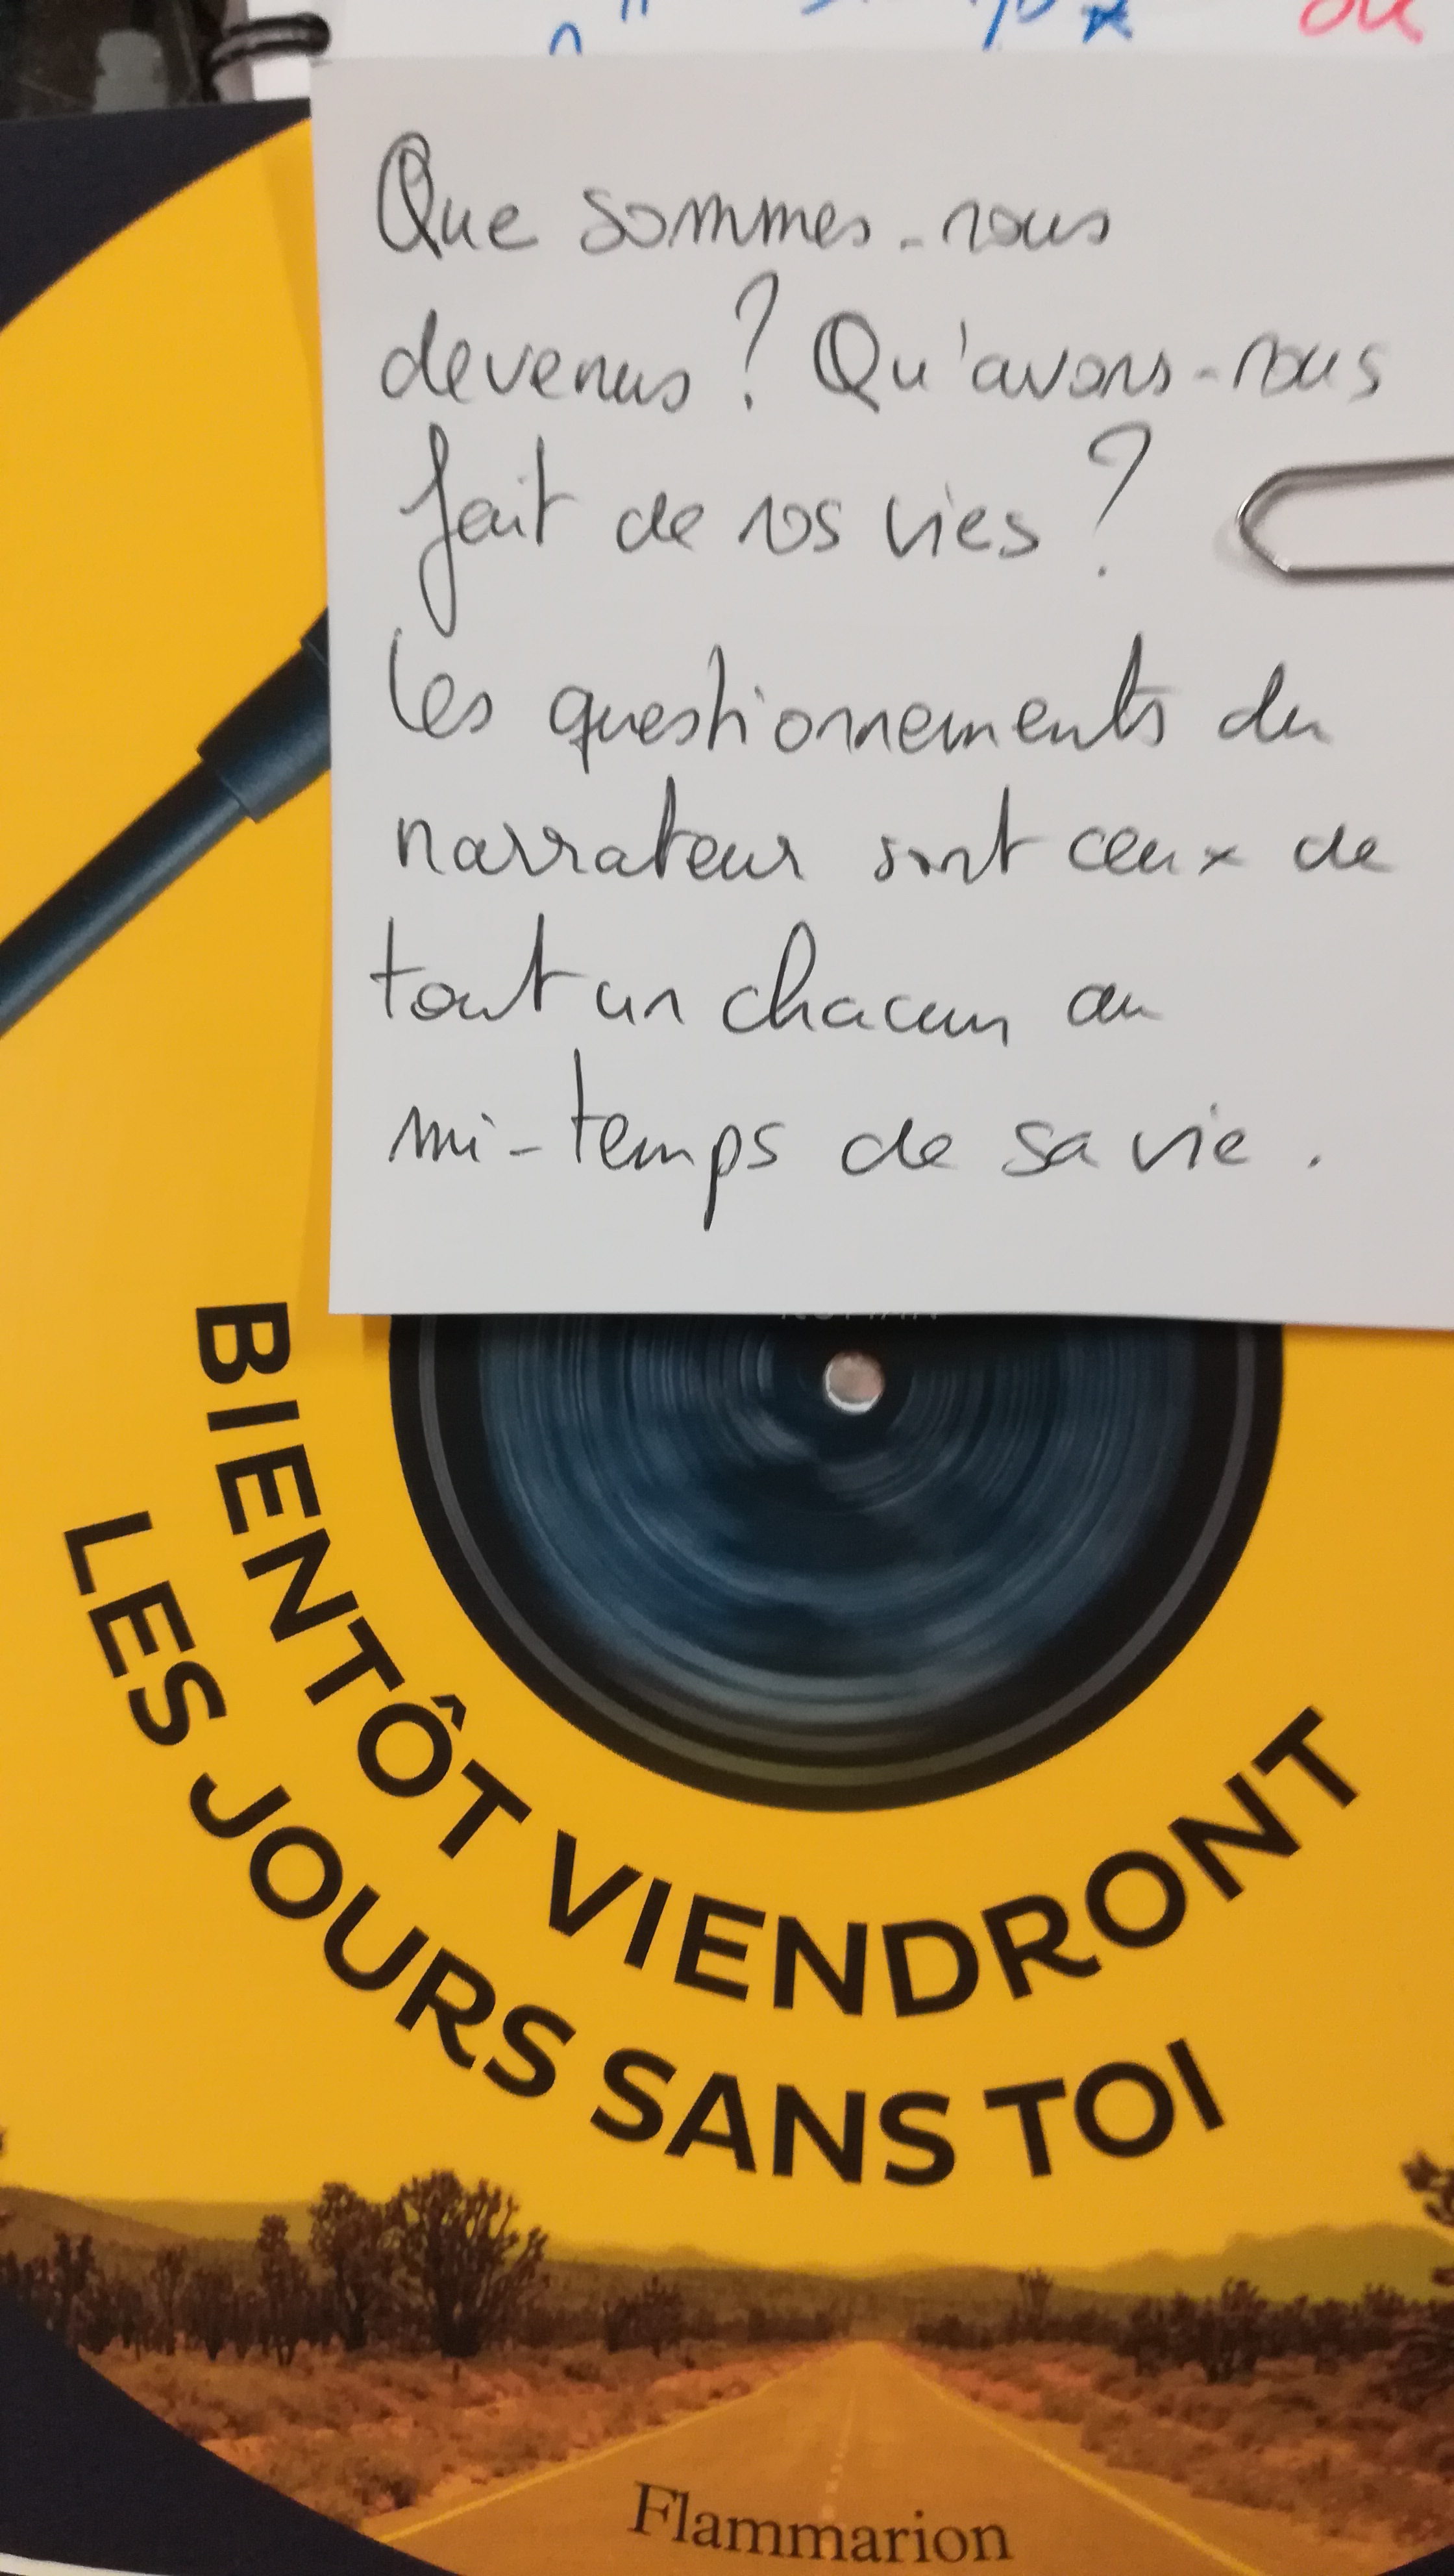 Que sommes-nous
devenus ? Qu'avons-nous
fait de nos vies ?
Les questionnements du
narrateur sont ceux de
tout un chacun au
mi-temps de sa vie.
BIENTÔT VIENDRONT
LES JOURS SANS TOI
Flammarion